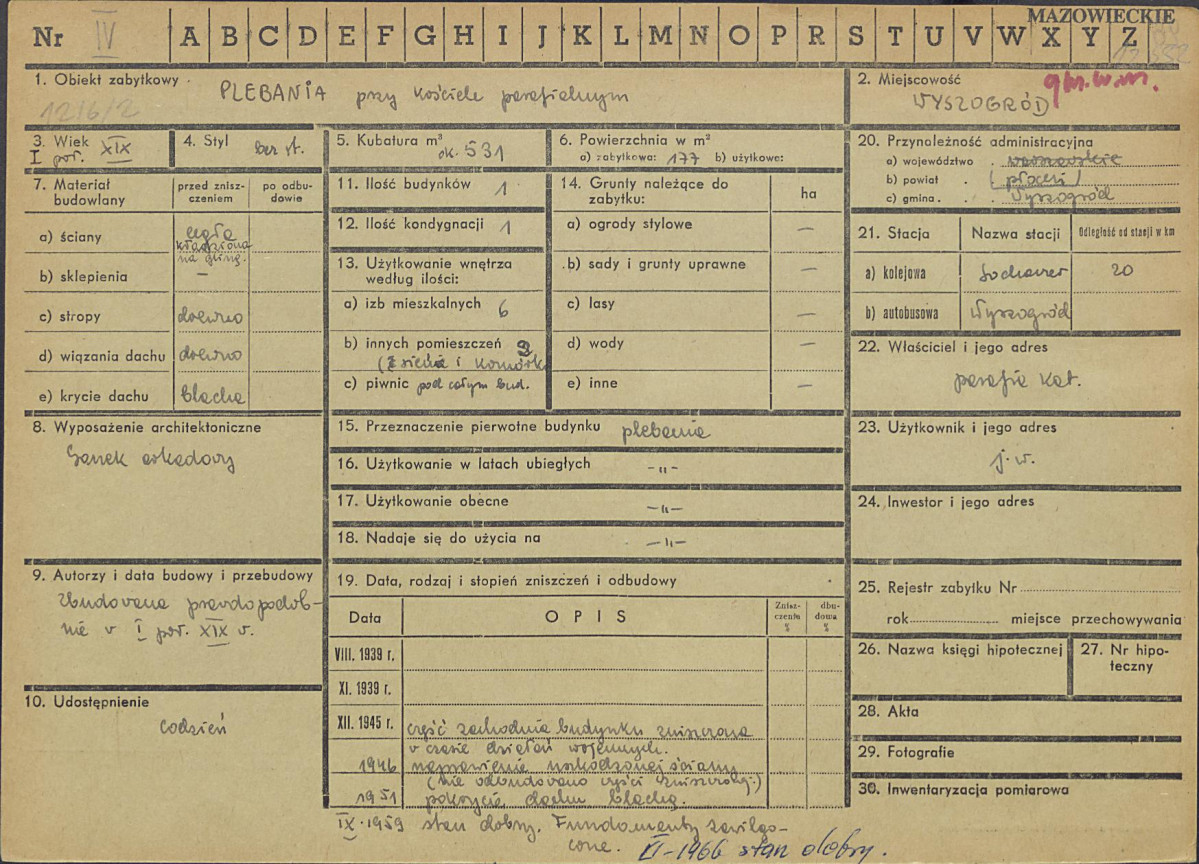 MAZOWIECKIE
Nr IV A B C D E F G H I J K L M N O P R S T U V W X Y Z
1. Obiekt zabytkowy PLEBANIA przy kościele parafialnym
1216/2
2. Miejscowość
WYSZOGRÓD
3. Wiek XIX
I poł.
4. Styl bez st.
5. Kubatura m³
ok. 531
6. Powierzchnia w m²
a) zabytkowa: 177 b) użytkowa:
7. Materiał budowlany
przed zniszczeniem
po odbudowie
a) ściany cegła
kładziona
na glinę.
b) sklepienia —
c) stropy drewno
d) wiązania dachu drewno
e) krycie dachu blacha
8. Wyposażenie architektoniczne
Ganek arkadowy
9. Autorzy i data budowy i przebudowy
Zbudowana prawdopodob-
nie w I poł. XIX w.
10. Udostępnienie
codzień
11. Ilość budynków 1
12. Ilość kondygnacji 1
13. Użytkowanie wnętrza
według ilości:
a) izb mieszkalnych 6
b) innych pomieszczeń
(sienie i komórk
c) piwnic pod całym bud.
14. Grunty należące do
zabytku:
ha
a) ogrody stylowe —
b) sady i grunty uprawne —
c) lasy —
d) wody —
e) inne —
15. Przeznaczenie pierwotne budynku plebania
16. Użytkowanie w latach ubiegłych -„-
17. Użytkowanie obecne -„-
18. Nadaje się do użycia na -„-
19. Data, rodzaj i stopień zniszczeń i odbudowy
Data
OPIS
Znisz-
czenia
%
dbu-
dowa
%
VIII. 1939 r.
XI. 1939 r.
XII. 1945 r. część zachodnia budynku zniszczona
w czasie działań wojennych.
1946 naprawienie uszkodzonej ściany
(nie odbudowano części zniszczonej.)
1951 pokrycie dachu blachą.
IX.1959 stan dobry. Fundamenty zawilgo-
cone. VI-1966 stan dobry.
20. Przynależność administracyjna
a) województwo warszawskie
b) powiat (płocki)
c) gmina Wyszogród
21. Stacja
Nazwa stacji
Odległość od stacji w km
a) kolejowa Sochaczew 20
b) autobusowa Wyszogród
22. Właściciel i jego adres
parafia kat.
23. Użytkownik i jego adres
j.w.
24. Inwestor i jego adres
25. Rejestr zabytku Nr
rok miejsce przechowywania
26. Nazwa księgi hipotecznej
27. Nr hipo-
teczny
28. Akta
29. Fotografie
30. Inwentaryzacja pomiarowa